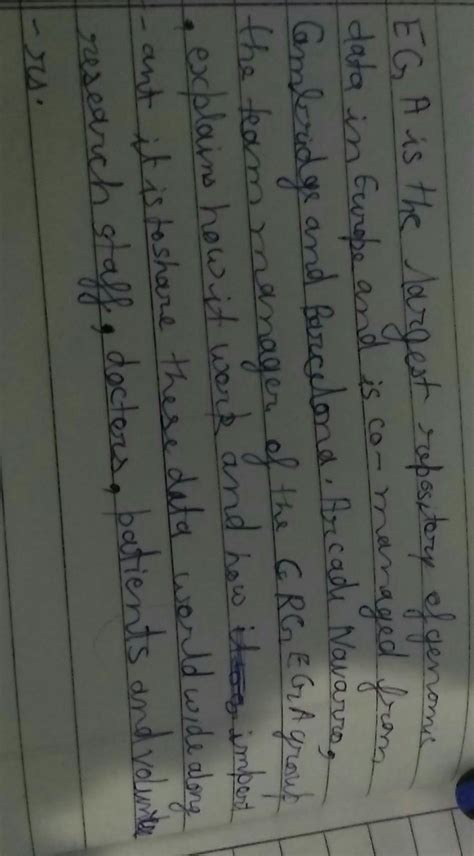 EGA is the largest repository of genomic
data in Europe and is co-managed from
Cambridge and Barcelona. Arcadi Navarro,
the team manager of the CRG EGA group
, explains how it work and how import
-ant it is to share these data world wide along
research staff, doctors, patients and voluntee
-rs.